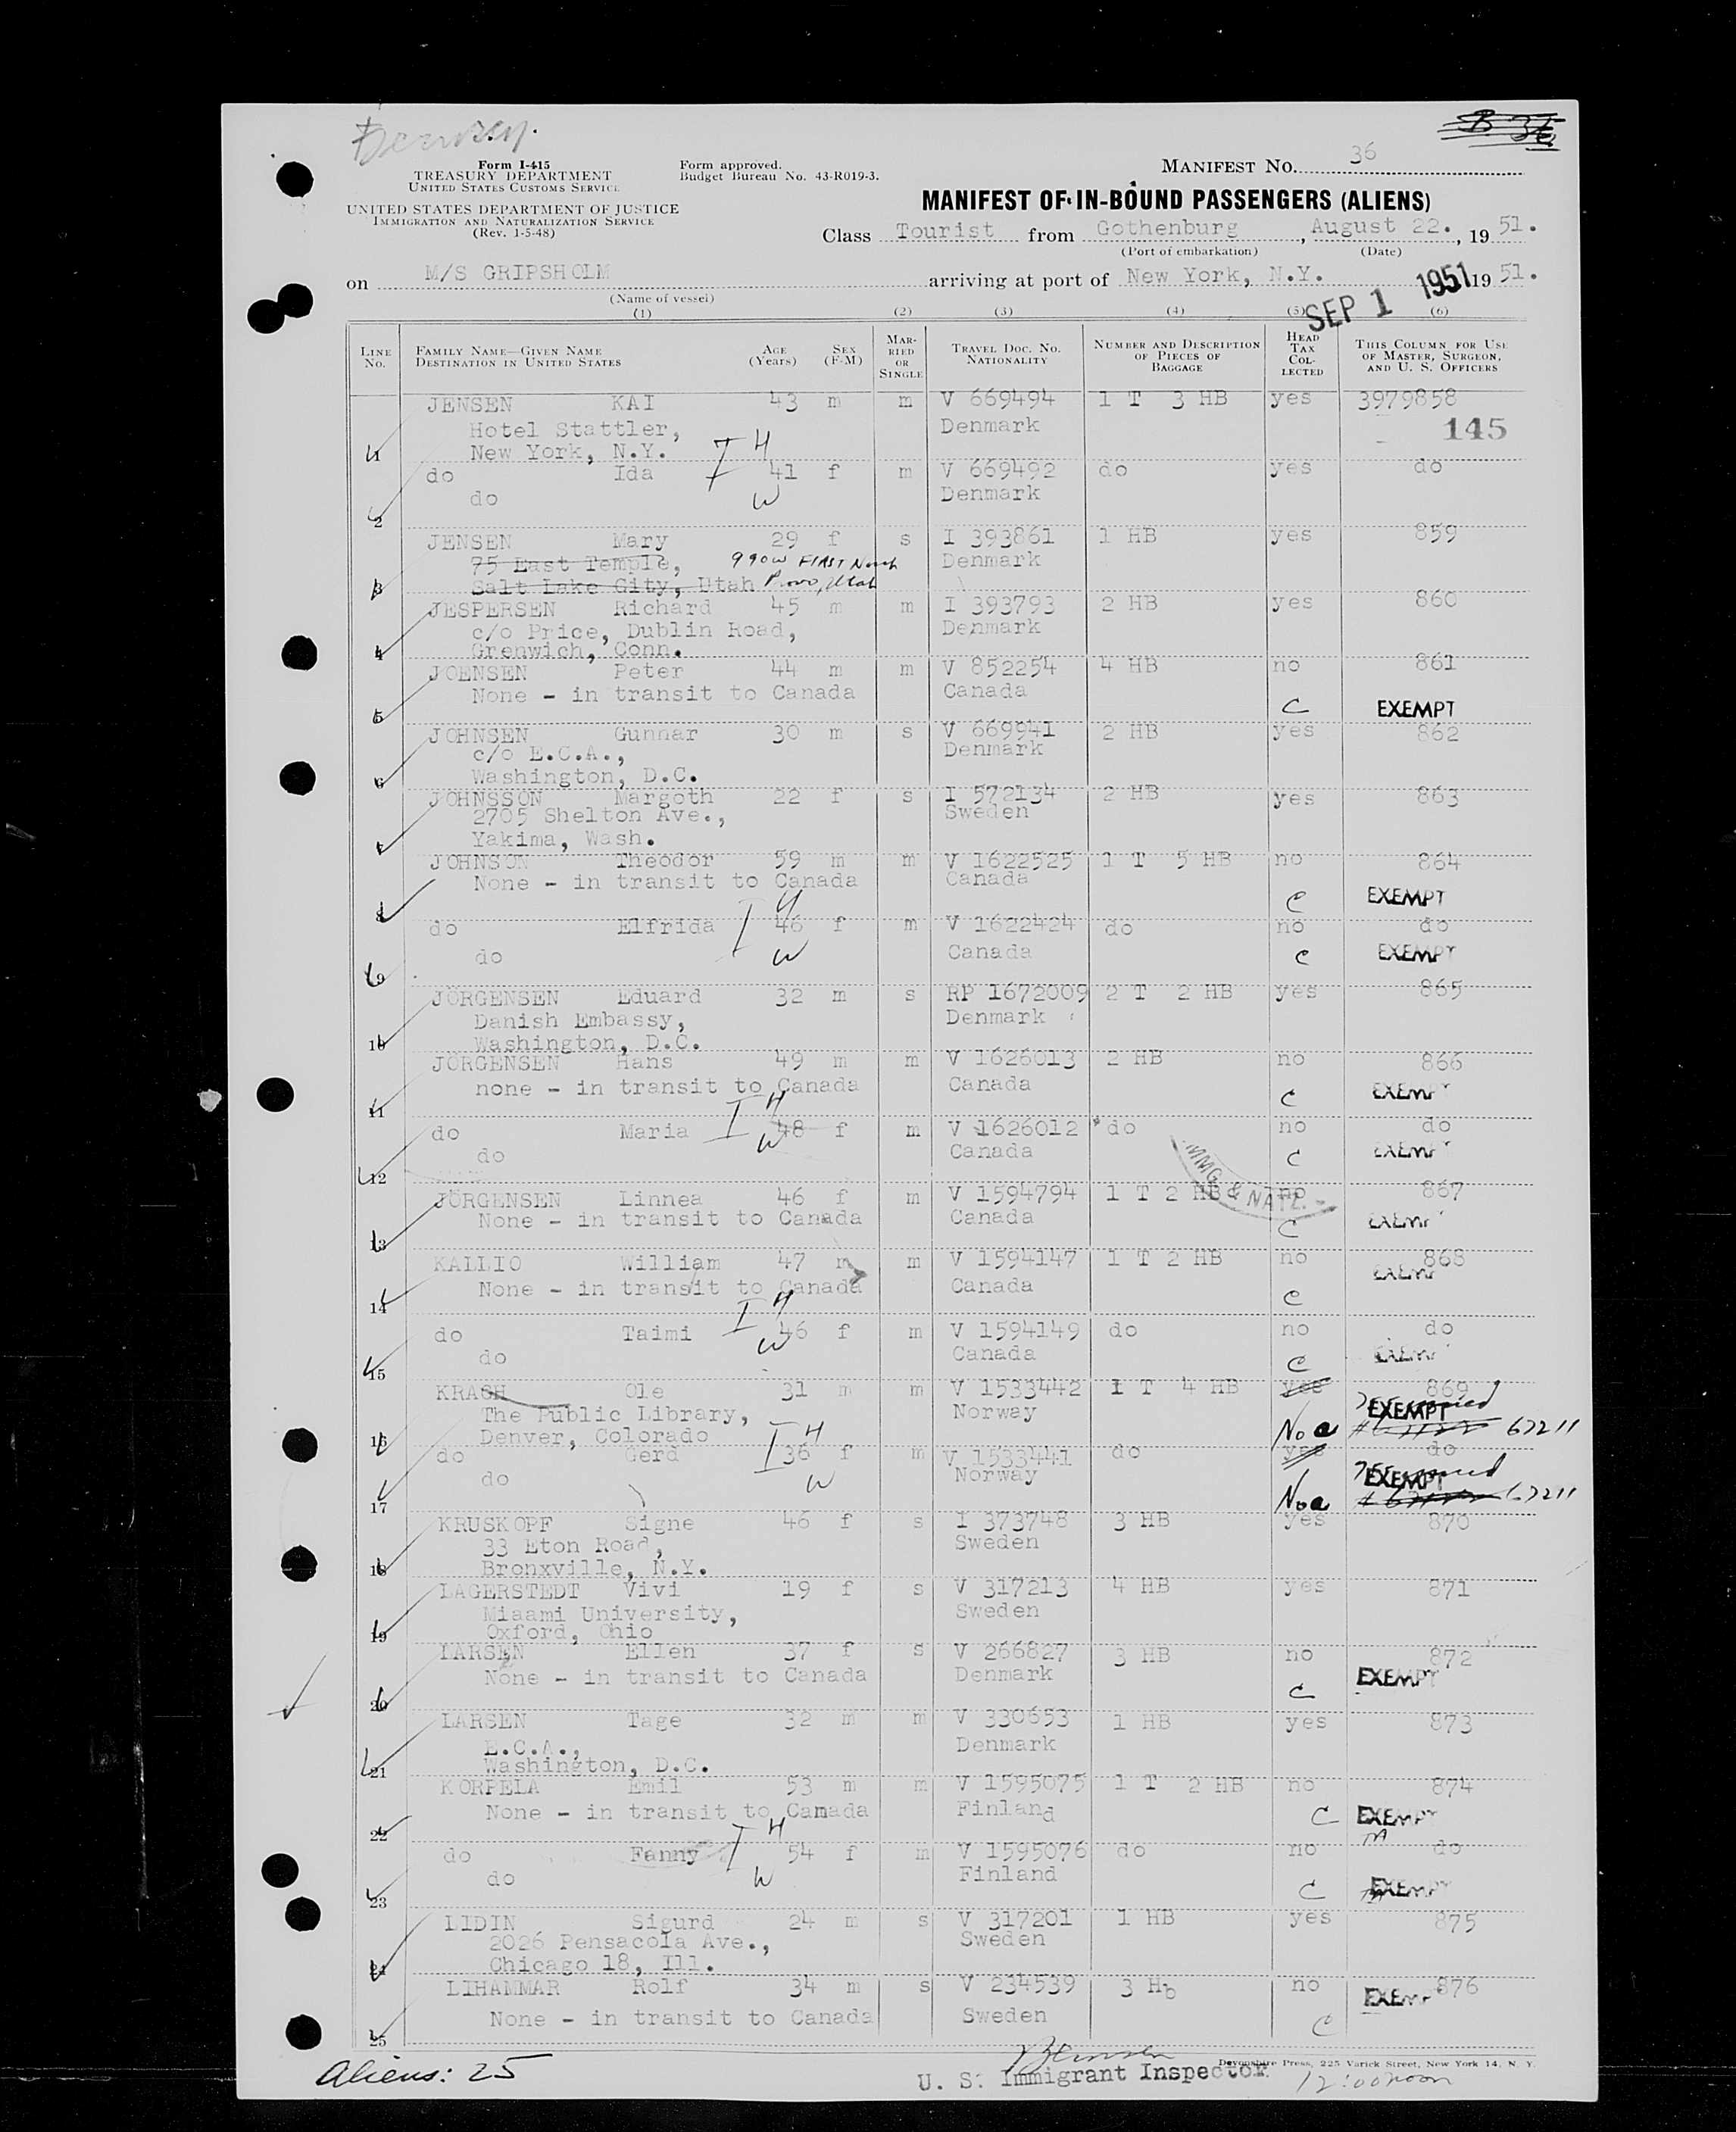 B 36
Form I-415
TREASURY DEPARTMENT
UNITED STATES CUSTOMS SERVICE
Form approved.
Budget Bureau No. 43-R019-3.
MANIFEST NO. 36
UNITED STATES DEPARTMENT OF JUSTICE
IMMIGRATION AND NATURALIZATION SERVICE
(Rev. 1-5-48)
MANIFEST OF IN-BOUND PASSENGERS (ALIENS)
Class Tourist from Gothenburg, August 22., 19 51.
(Port of embarkation) (Date)
on M/S GRIPSHOLM arriving at port of New York, N.Y. SEP 1 1951 19 51.
(Name of vessel)
(1) (2) (3) (4) (5) (6)
LINE NO. FAMILY NAME—GIVEN NAME DESTINATION IN UNITED STATES AGE (Years) SEX (F-M) MARRIED OR SINGLE TRAVEL DOC. NO. NATIONALITY NUMBER AND DESCRIPTION OF PIECES OF BAGGAGE HEAD TAX COLLECTED THIS COLUMN FOR USE OF MASTER, SURGEON, AND U. S. OFFICERS
JENSEN KAI 43 m m V 669494 1 T 3 HB yes 3979858
Hotel Stattler, Denmark 145
1 New York, N.Y. I H
do Ida 41 f m V 669492 do yes do
do W Denmark
2
JENSEN Mary 29 f s I 393861 1 HB yes 859
75 East Temple, 990W FIRST North Denmark
3 Salt Lake City, Utah Provo, Utah
JESPERSEN Richard 45 m m I 393793 2 HB yes 860
c/o Price, Dublin Road, Denmark
4 Grenwich, Conn.
JOENSEN Peter 44 m m V 852254 4 HB no 861
None - in transit to Canada Canada
5 C EXEMPT
JOHNSEN Gunnar 30 m s V 669941 2 HB yes 862
c/o E.C.A., Denmark
6 Washington, D.C.
JOHNSSON Margoth 22 f s I 572134 2 HB yes 863
2705 Shelton Ave., Sweden
7 Yakima, Wash.
JOHNSON Theodor 59 m m V 1622525 1 T 5 HB no 864
None - in transit to Canada Canada
8 I H C EXEMPT
do Elfrida 46 f m V 1622424 do no do
do W Canada C EXEMPT
9
JÖRGENSEN Eduard 32 m s RP 1672009 2 T 2 HB yes 865
Danish Embassy, Denmark
10 Washington, D.C.
JÖRGENSEN Hans 49 m m V 1626013 2 HB no 866
none - in transit to Canada Canada
11 I H C EXEMPT
do Maria 48 f m V 1626012 do no do
do W Canada C EXEMPT
12 IMMG & NATZ.
JÖRGENSEN Linnea 46 f m V 1594794 1 T 2 HB no 867
None - in transit to Canada Canada
13 C EXEMPT
KALLIO William 47 m m V 1594147 1 T 2 HB no 868
None - in transit to Canada Canada EXEMPT
14 I H C
do Taimi 46 f m V 1594149 do no do
do W Canada C EXEMPT
15
KRAGH Ole 31 m m V 1533442 1 T 4 HB yes 869
The Public Library, Norway EXEMPT
16 Denver, Colorado I H No a 67211
do Gerd 36 f m V 1533441 do yes do
do W Norway EXEMPT
17 No a 67211
KRUSKOPF Signe 46 f s I 373748 3 HB yes 870
33 Eton Road, Sweden
18 Bronxville, N.Y.
LAGERSTEDT Vivi 19 f s V 317213 4 HB yes 871
Miaami University, Sweden
19 Oxford, Ohio
LARSEN Ellen 37 f s V 266827 3 HB no 872
None - in transit to Canada Denmark EXEMPT
20 C
LARSEN Tage 32 m m V 330653 1 HB yes 873
E.C.A., Denmark
21 Washington, D.C.
KORPELA Emil 53 m m V 1595075 1 T 2 HB no 874
None - in transit to Camada Finland C EXEMPT
22 I H
do Fanny 54 f m V 1595076 do no do
do W Finland C EXEMPT
23
LIDIN Sigurd 24 m s V 317201 1 HB yes 875
2026 Pensacola Ave., Sweden
24 Chicago 18, Ill.
LIHAMMAR Rolf 34 m s V 234539 3 Hb no 876
None - in transit to Canada Sweden C EXEMPT
25
Aliens: 25
U. S. Immigrant Inspector
Devonshire Press, 225 Varick Street, New York 14, N. Y.
12:00 noon